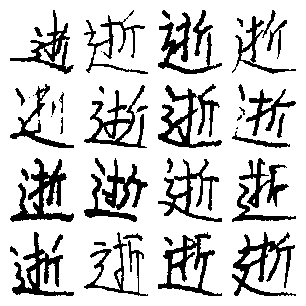 逝逝逝逝
逝逝逝逝
逝逝逝逝
逝逝逝逝